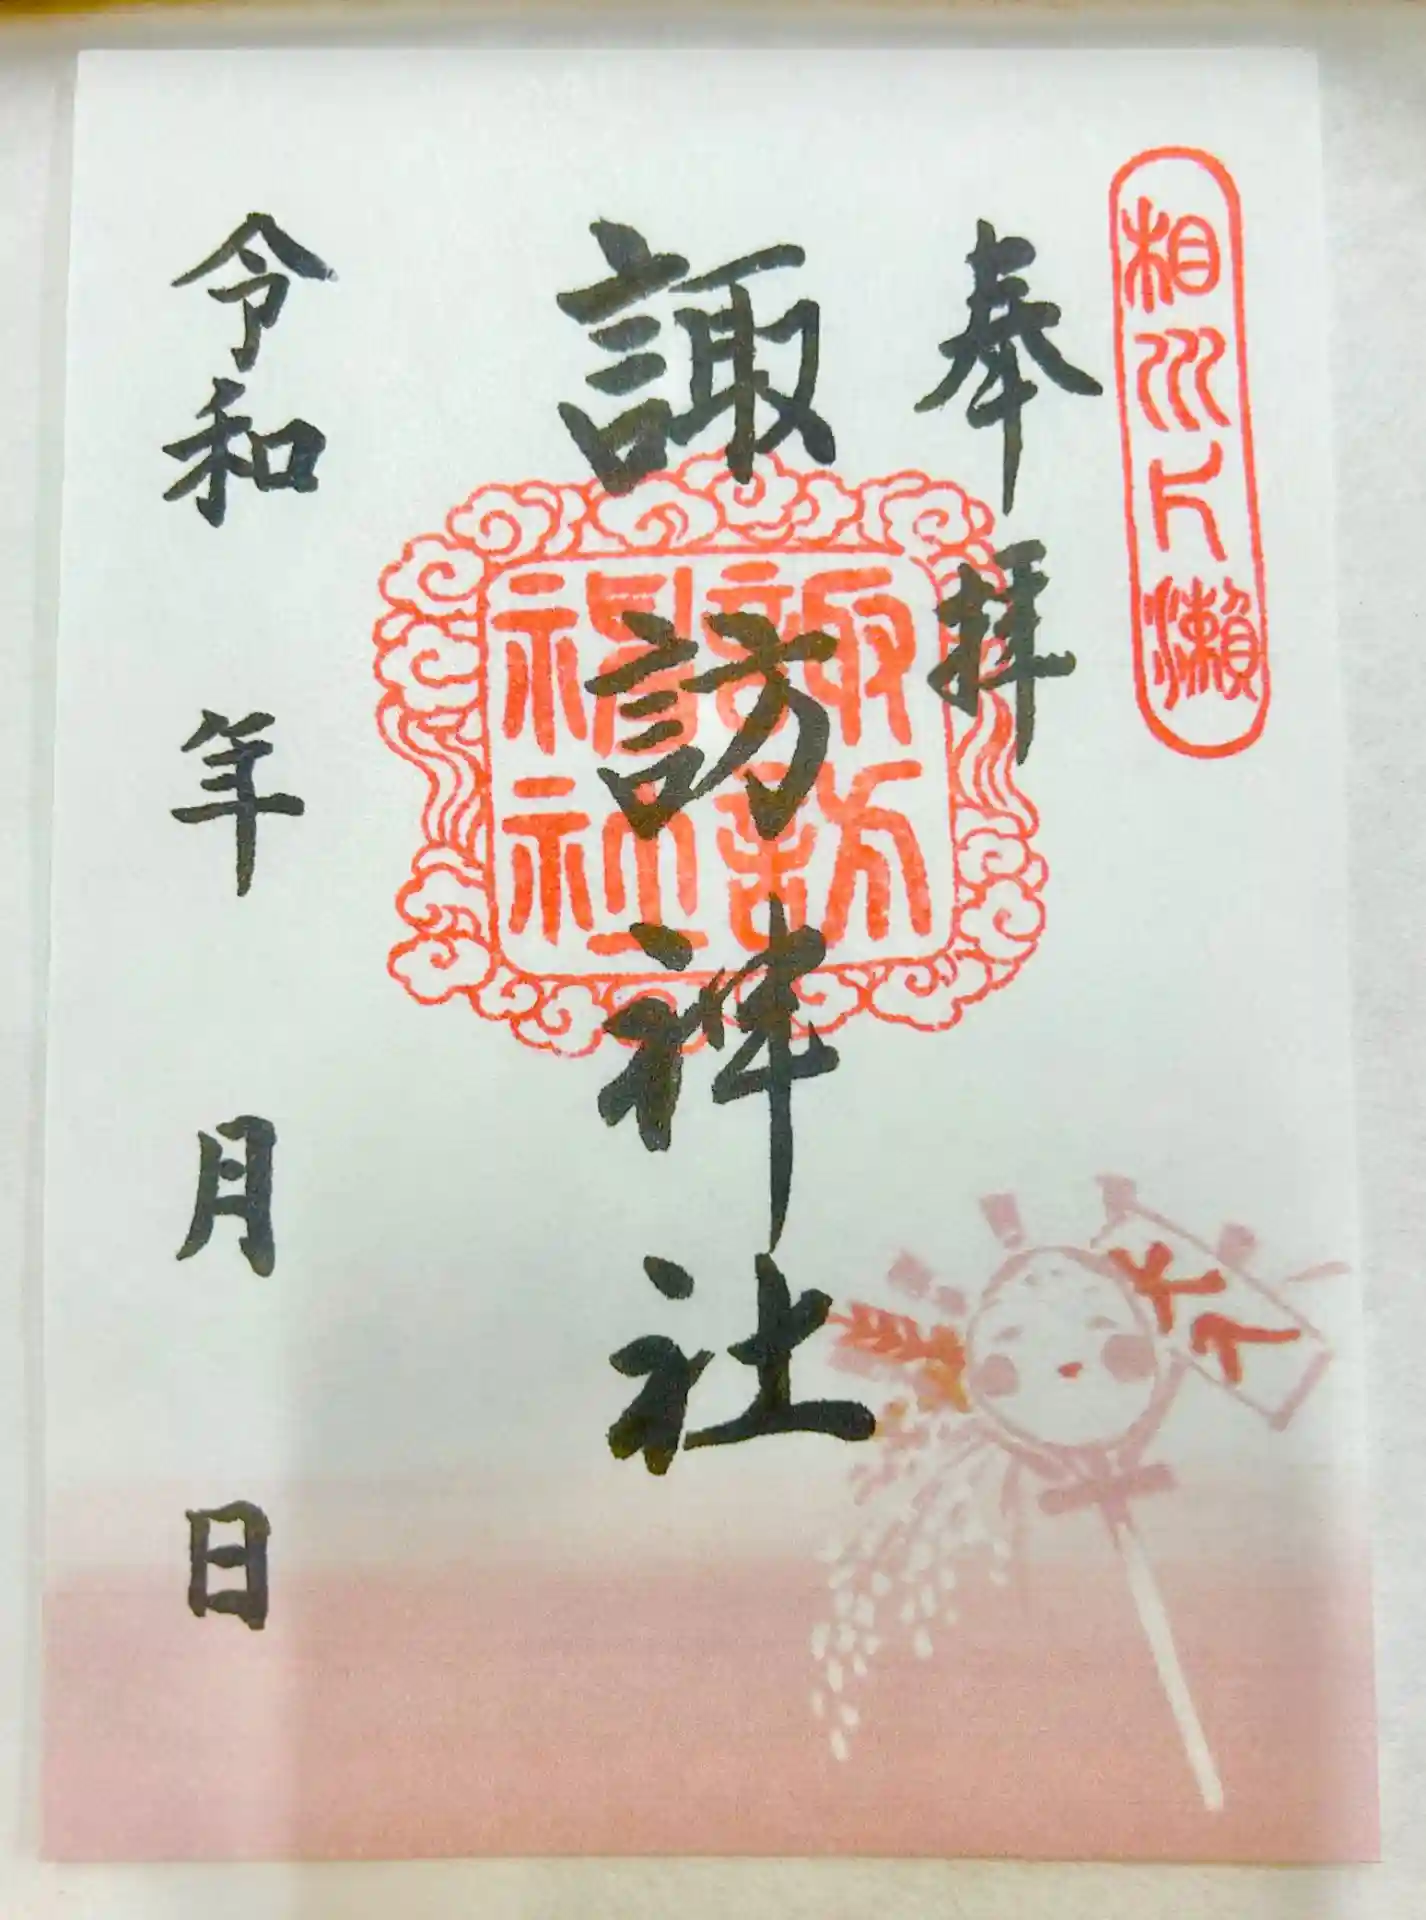 相州片瀬
奉拝
諏訪神社
諏訪
神社
令和 年 月 日
大入